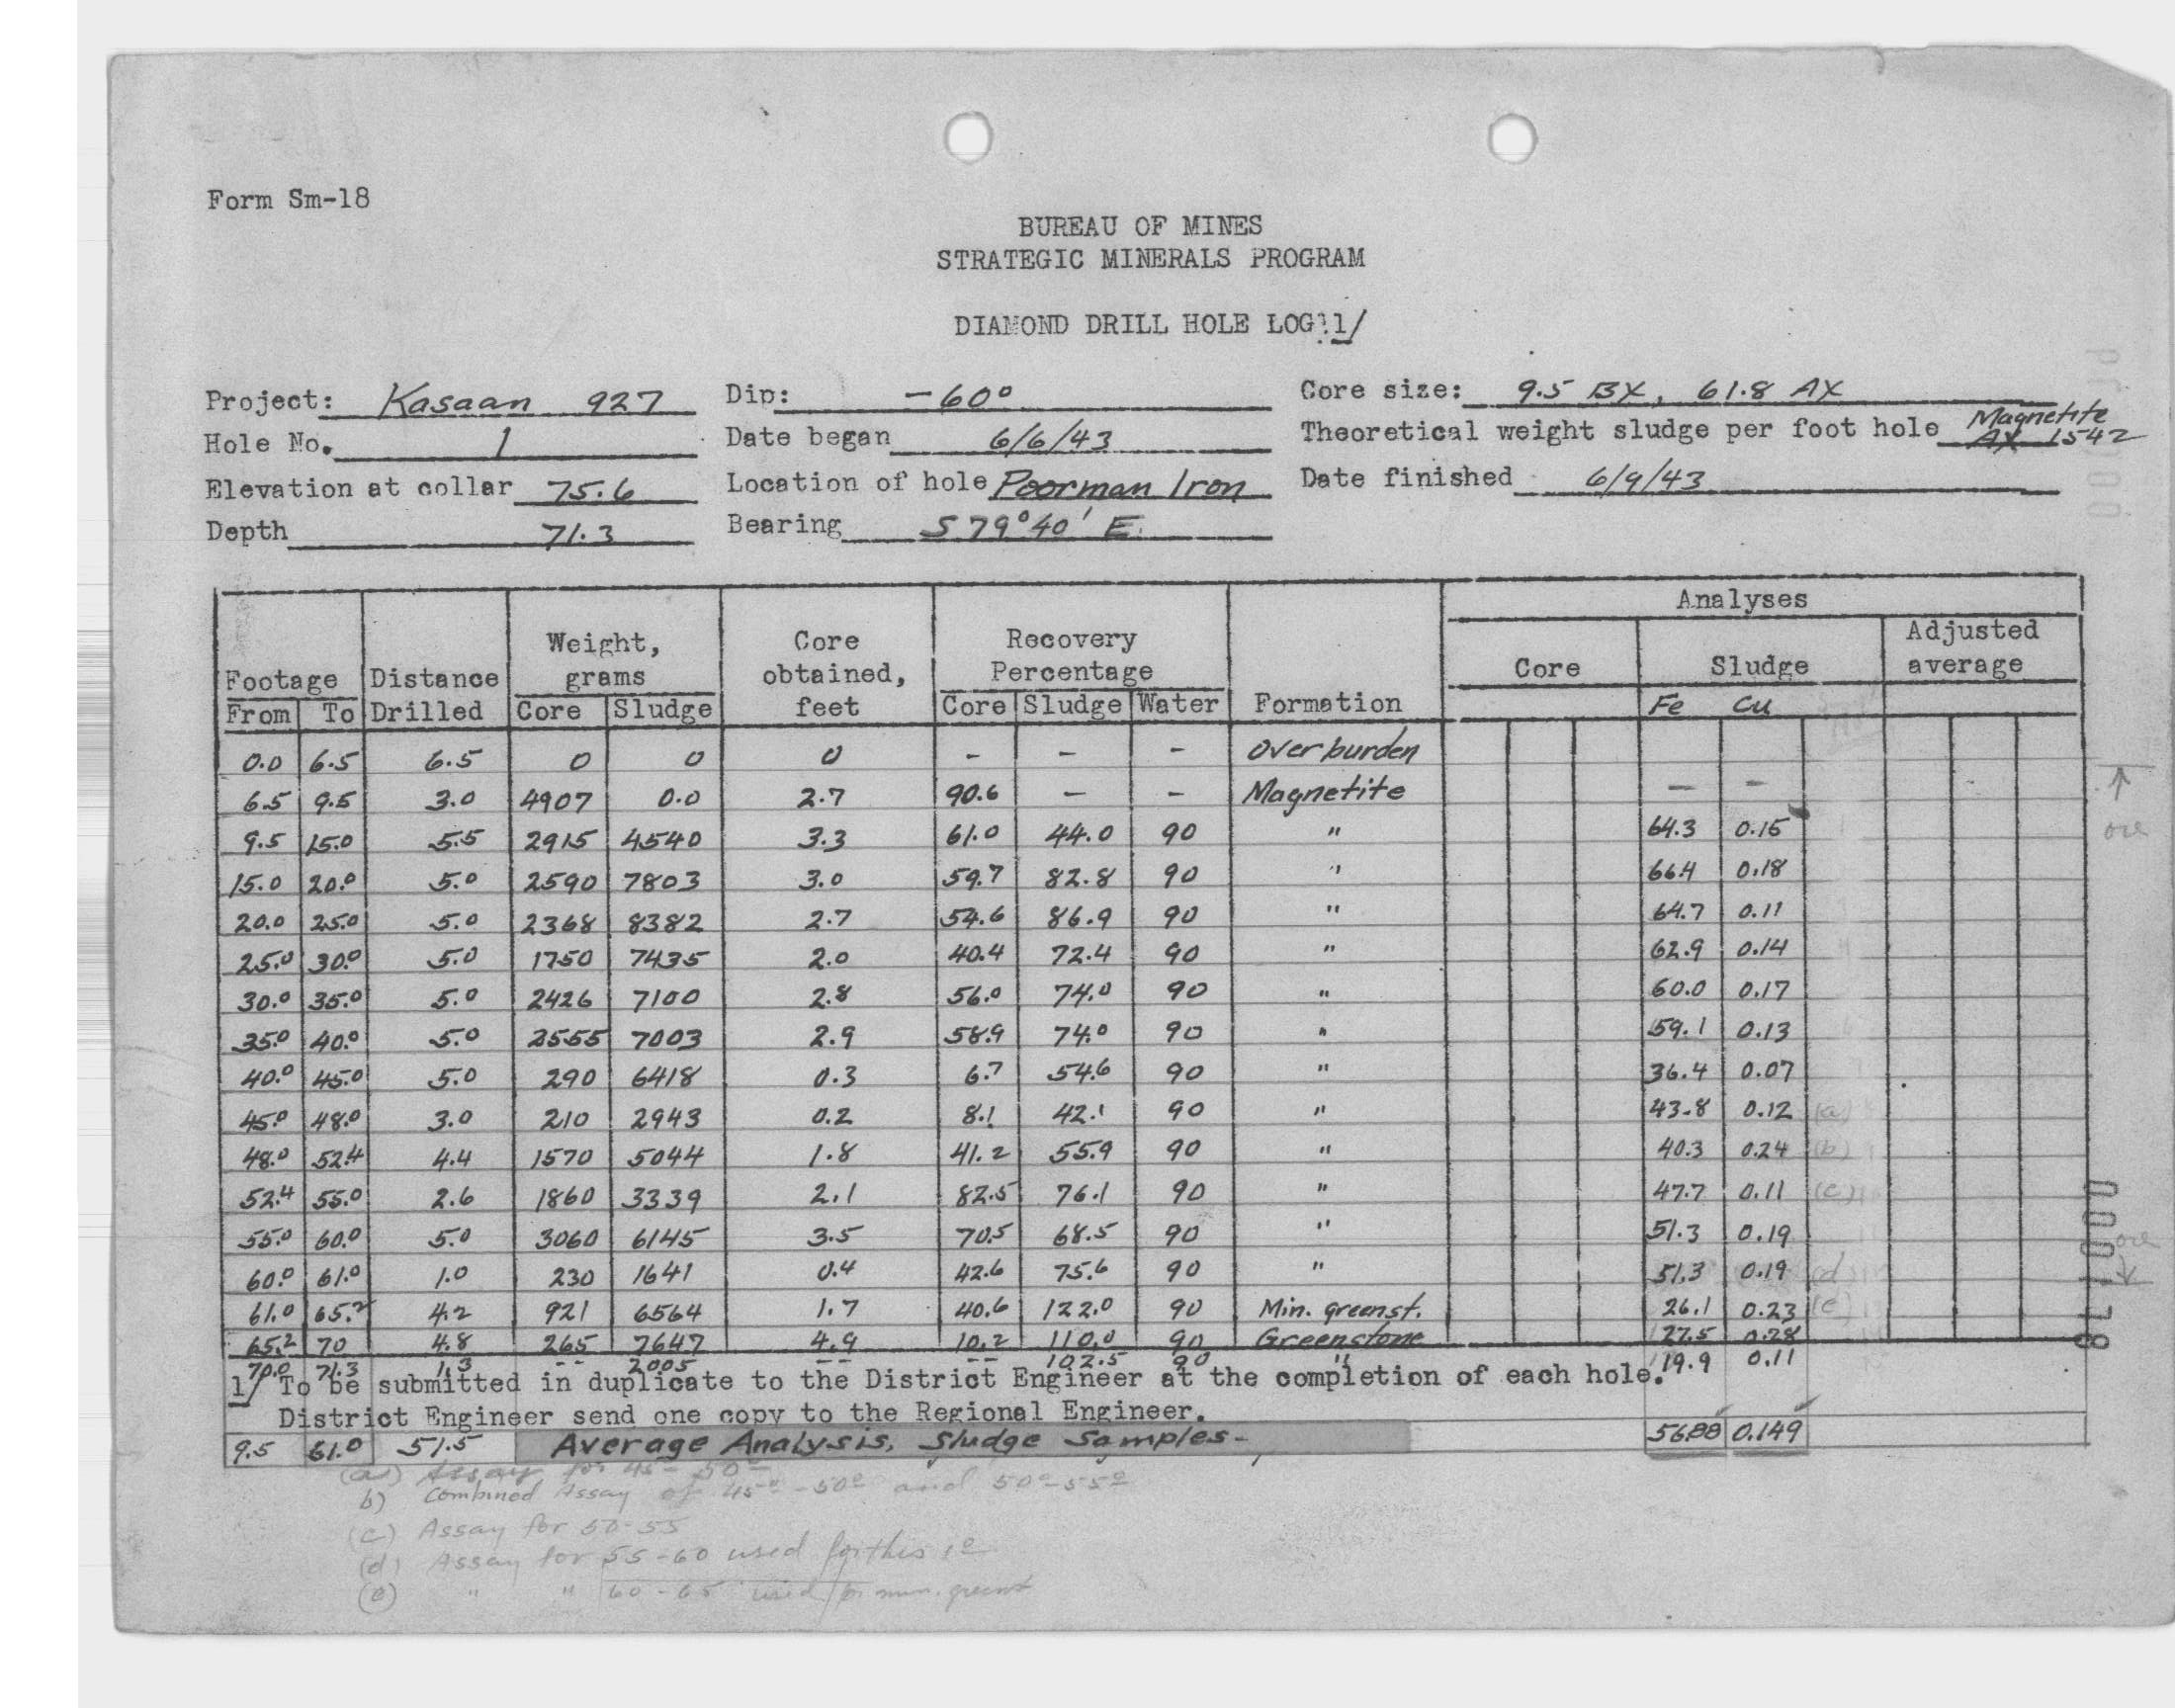 Form Sm-18
BUREAU OF MINES
STRATEGIC MINERALS PROGRAM
DIAMOND DRILL HOLE LOG 1/
Project: Kasaan 927 Dip: -60° Core size: 9.5 BX, 61.8 AX
Hole No. 1 Date began 6/6/43 Theoretical weight sludge per foot hole Magnetite AX 1542
Elevation at collar 75.6 Location of hole Poorman Iron Date finished 6/9/43
Depth 71.3 Bearing S 79° 40' E.
Analyses
Weight, grams Core obtained, feet Recovery Percentage Core Sludge Adjusted average
Footage Distance Drilled Formation
From To Core Sludge Core Sludge Water Fe Cu
0.0 6.5 6.5 0 0 0 - - - Overburden
6.5 9.5 3.0 4907 0.0 2.7 90.6 - - Magnetite - -
9.5 15.0 5.5 2915 4540 3.3 61.0 44.0 90 " 64.3 0.15
15.0 20.0 5.0 2590 7803 3.0 59.7 82.8 90 " 66.4 0.18
20.0 25.0 5.0 2368 8382 2.7 54.6 86.9 90 " 64.7 0.11
25.0 30.0 5.0 1750 7435 2.0 40.4 72.4 90 " 62.9 0.14
30.0 35.0 5.0 2426 7100 2.8 56.0 74.0 90 " 60.0 0.17
35.0 40.0 5.0 2555 7003 2.9 58.9 74.0 90 " 59.1 0.13
40.0 45.0 5.0 290 6418 0.3 6.7 54.6 90 " 36.4 0.07
45.0 48.0 3.0 210 2943 0.2 8.1 42.1 90 " 43.8 0.12 (a)
48.0 52.4 4.4 1570 5044 1.8 41.2 55.9 90 " 40.3 0.24 (b)
52.4 55.0 2.6 1860 3339 2.1 82.5 76.1 90 " 47.7 0.11 (c)
55.0 60.0 5.0 3060 6145 3.5 70.5 68.5 90 " 51.3 0.19
60.0 61.0 1.0 230 1641 0.4 42.6 75.6 90 " 51.3 0.19 (d)
61.0 65.2 4.2 921 6564 1.7 40.6 122.0 90 Min. greenst. 26.1 0.23 (e)
65.2 70 4.8 265 7647 4.9 10.2 110.0 90 Greenstone 27.5 0.28
70.0 71.3 1.3 -- 2005 -- -- 102.5 90 " 19.9 0.11
1/ To be submitted in duplicate to the District Engineer at the completion of each hole.
District Engineer send one copy to the Regional Engineer.
9.5 61.0 51.5 Average Analysis, Sludge Samples- 56.88 0.149
(a) Assay for 45-50
b) Combined Assay of 45°-50° and 50°-55°
(c) Assay for 50-55
(d) Assay for 55-60 used for this 1°
(e) " " 60-65 used for min. greenst
ore
ore